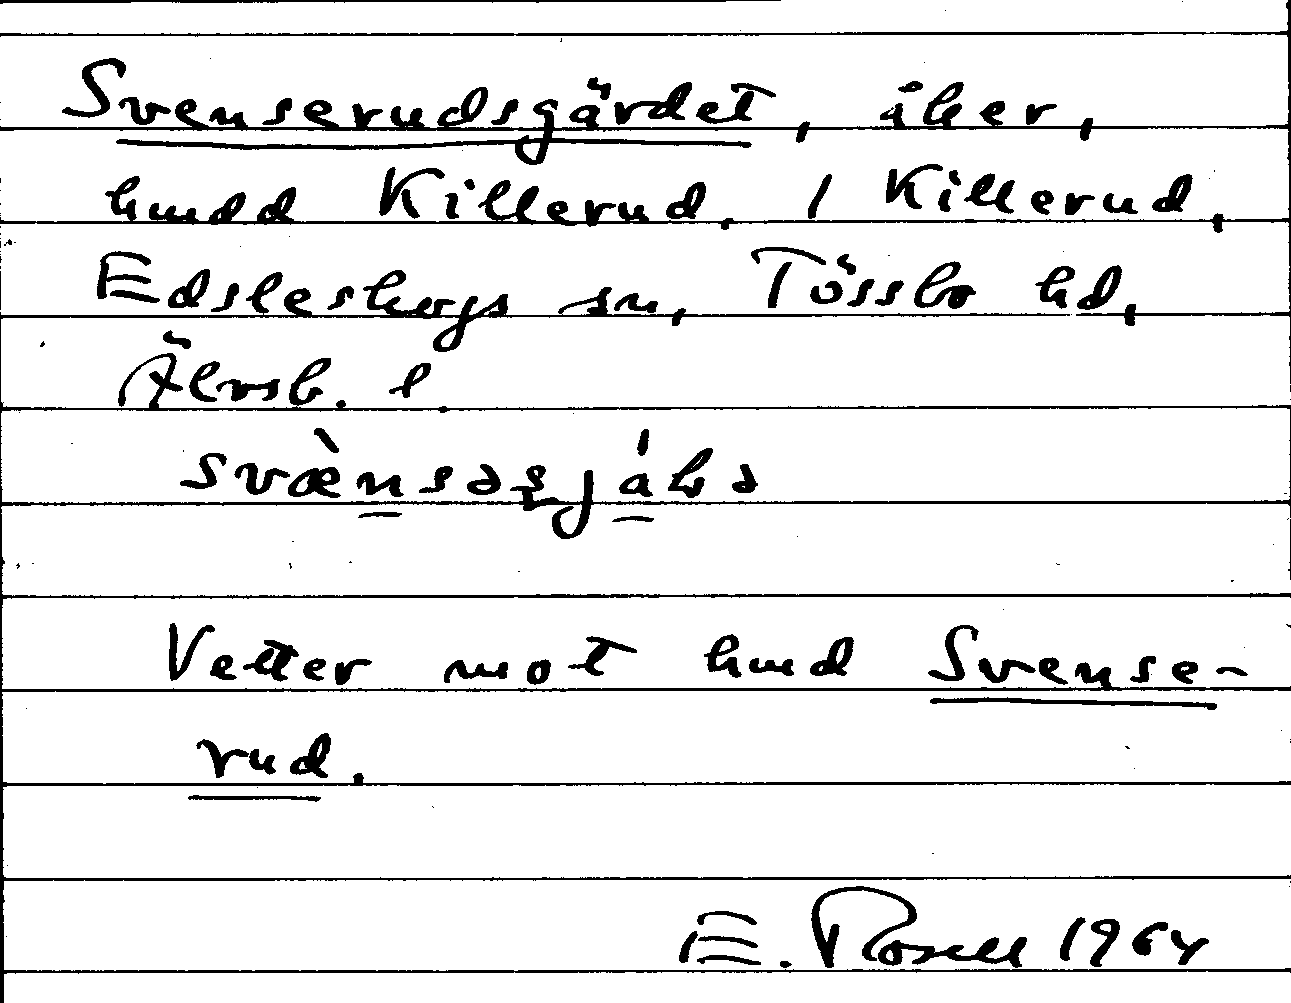 Svenserudsgärdet, åker,
hmdd Killerud, 1 Killerud,
Edsleskogs sn, Tössbo hd,
Älvsb. l.
Vetter mot hmd Svense-
rud.
E. Rosell 1964